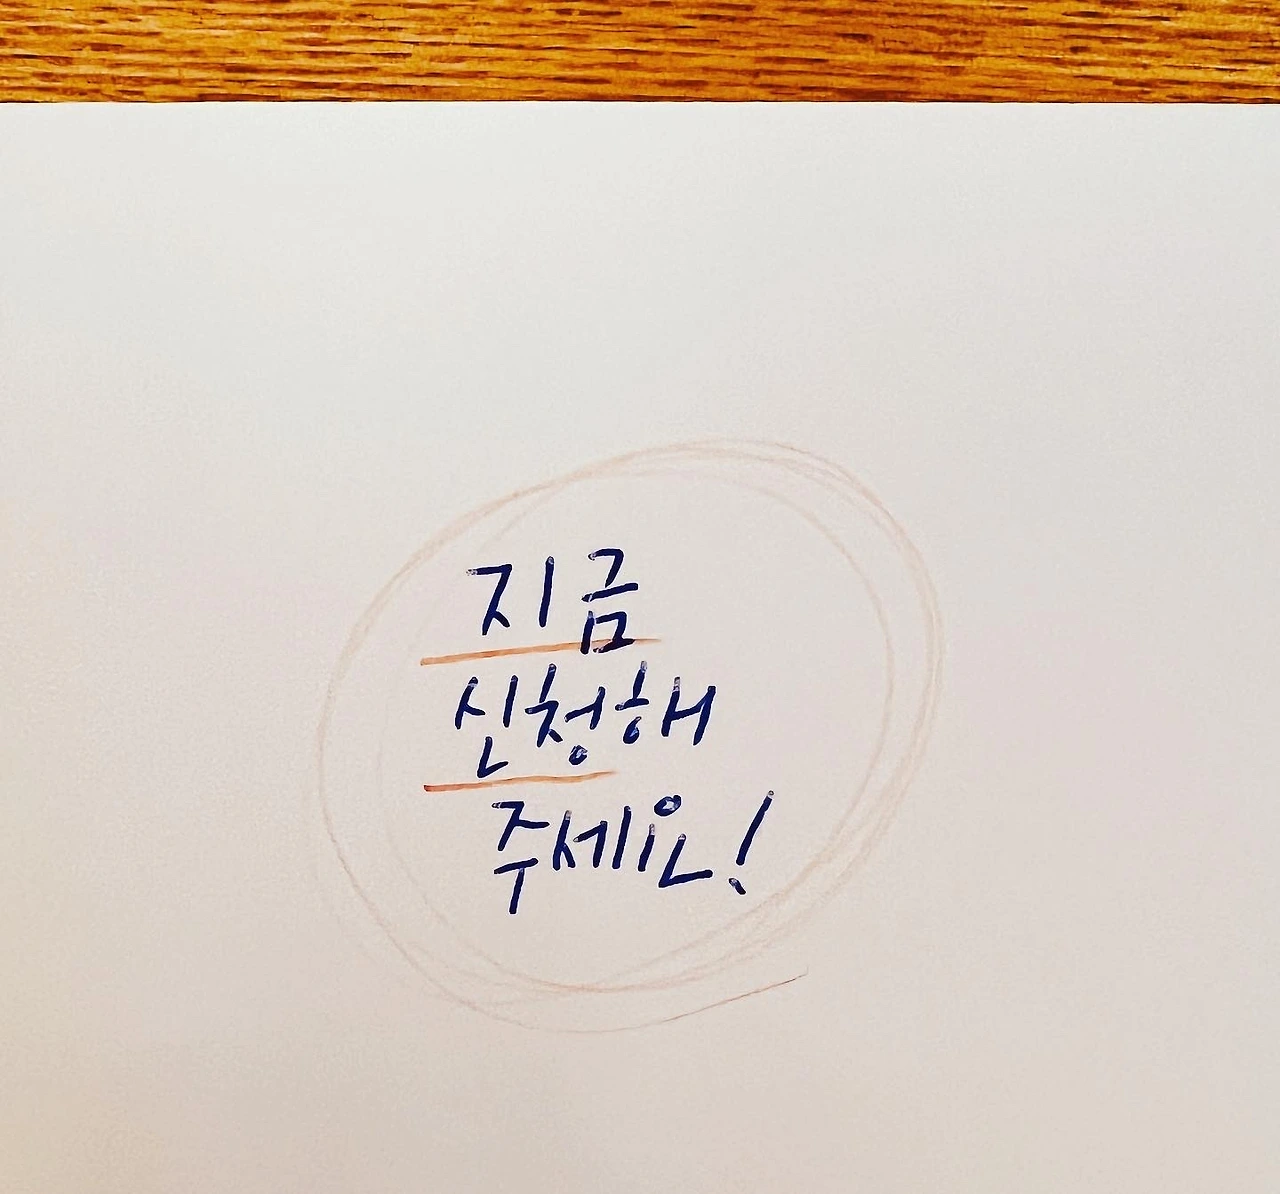 지금
신청해
주세요!